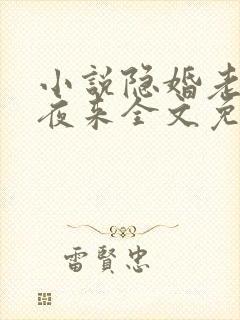 小说隐婚老
夜来全文免
雷賢忠